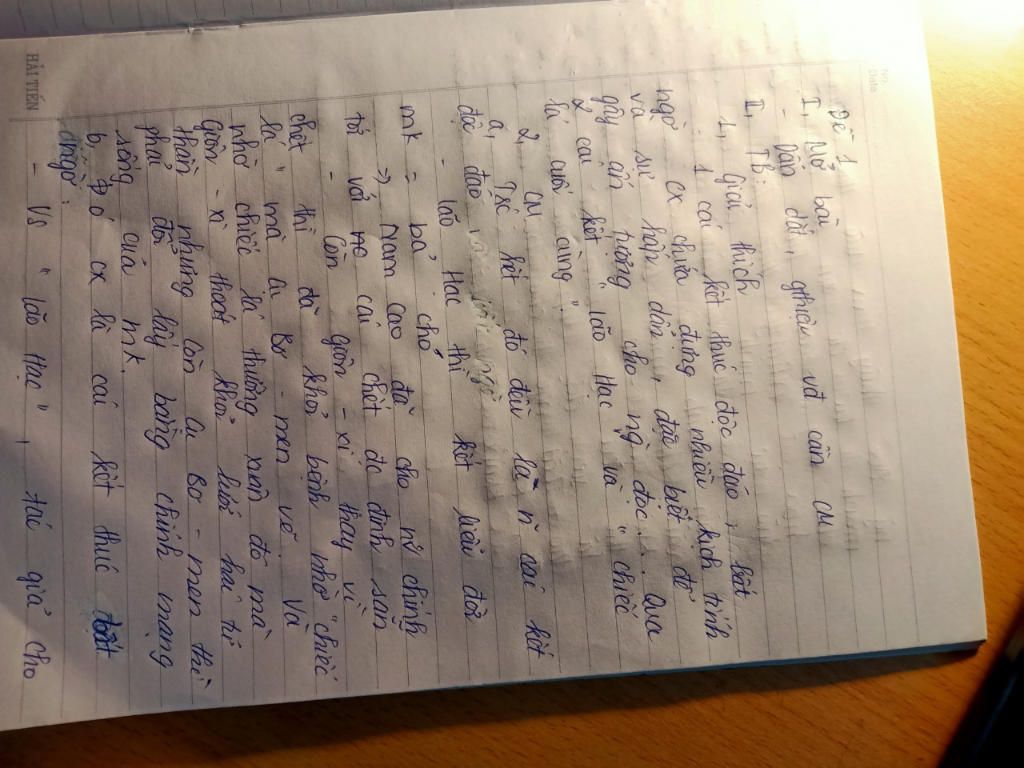 No.
Date
Đề 1
I, Mở bài
- Dẫn dắt, gthiệu vđ cần CM
II, TB:
1, Giải thích
- 1 cái kết thúc độc đáo, bất
ngờ cx chứa đựng nhiều kịch tính
và sự hấp dẫn, đặc biệt để
gây ấn tượng cho ng đọc. Qua
2 cái kết "lão Hạc và "chiếc
lá cuối cùng".
2, CM
a, Txé hết đó đều là n~ cái kết
độc đáo
- lão Hạc thì kết liễu đời
mk = bả chó
=> Nam Cao đã cho nv chính
tới vs 1 cái chết do định sẵn
- Còn Giôn-xi thay vì
chết thì đã khỏi bệnh nhờ "chiếc
lá" mà cụ Bơ-men vẽ. Và
nhờ chiếc lá thường xuân đó mà
Giôn-xi thoát khỏi lưỡi hái tử
thần nhưng còn cụ Bơ-men thì
phải đổi lấy bằng chính mạng
sống của mk.
b, Đó cx là cái kết thúc bất
ngờ:
- Vs "lão Hạc", tác giả cho
HẢI TIẾN